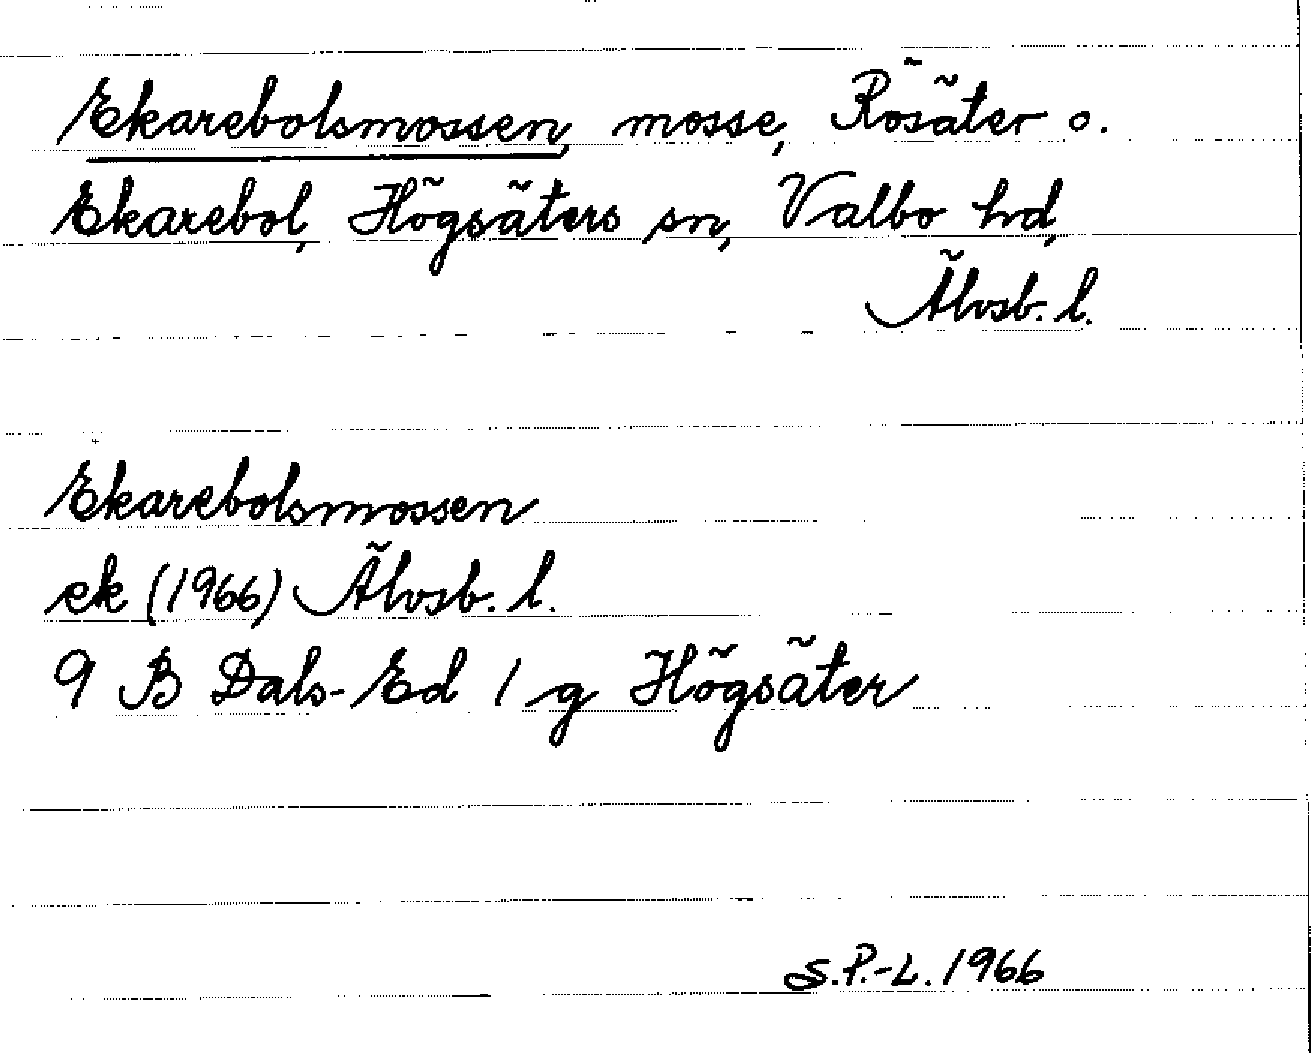 Ekarebolsmossen, mosse, Rösäter o.
Ekarebol, Högsäters sn, Valbo hd,
Älvsb. l.
Ekarebolsmossen
ek (1966) Älvsb. l.
9 B Dals-Ed 1 g Högsäter
S.P.-L. 1966